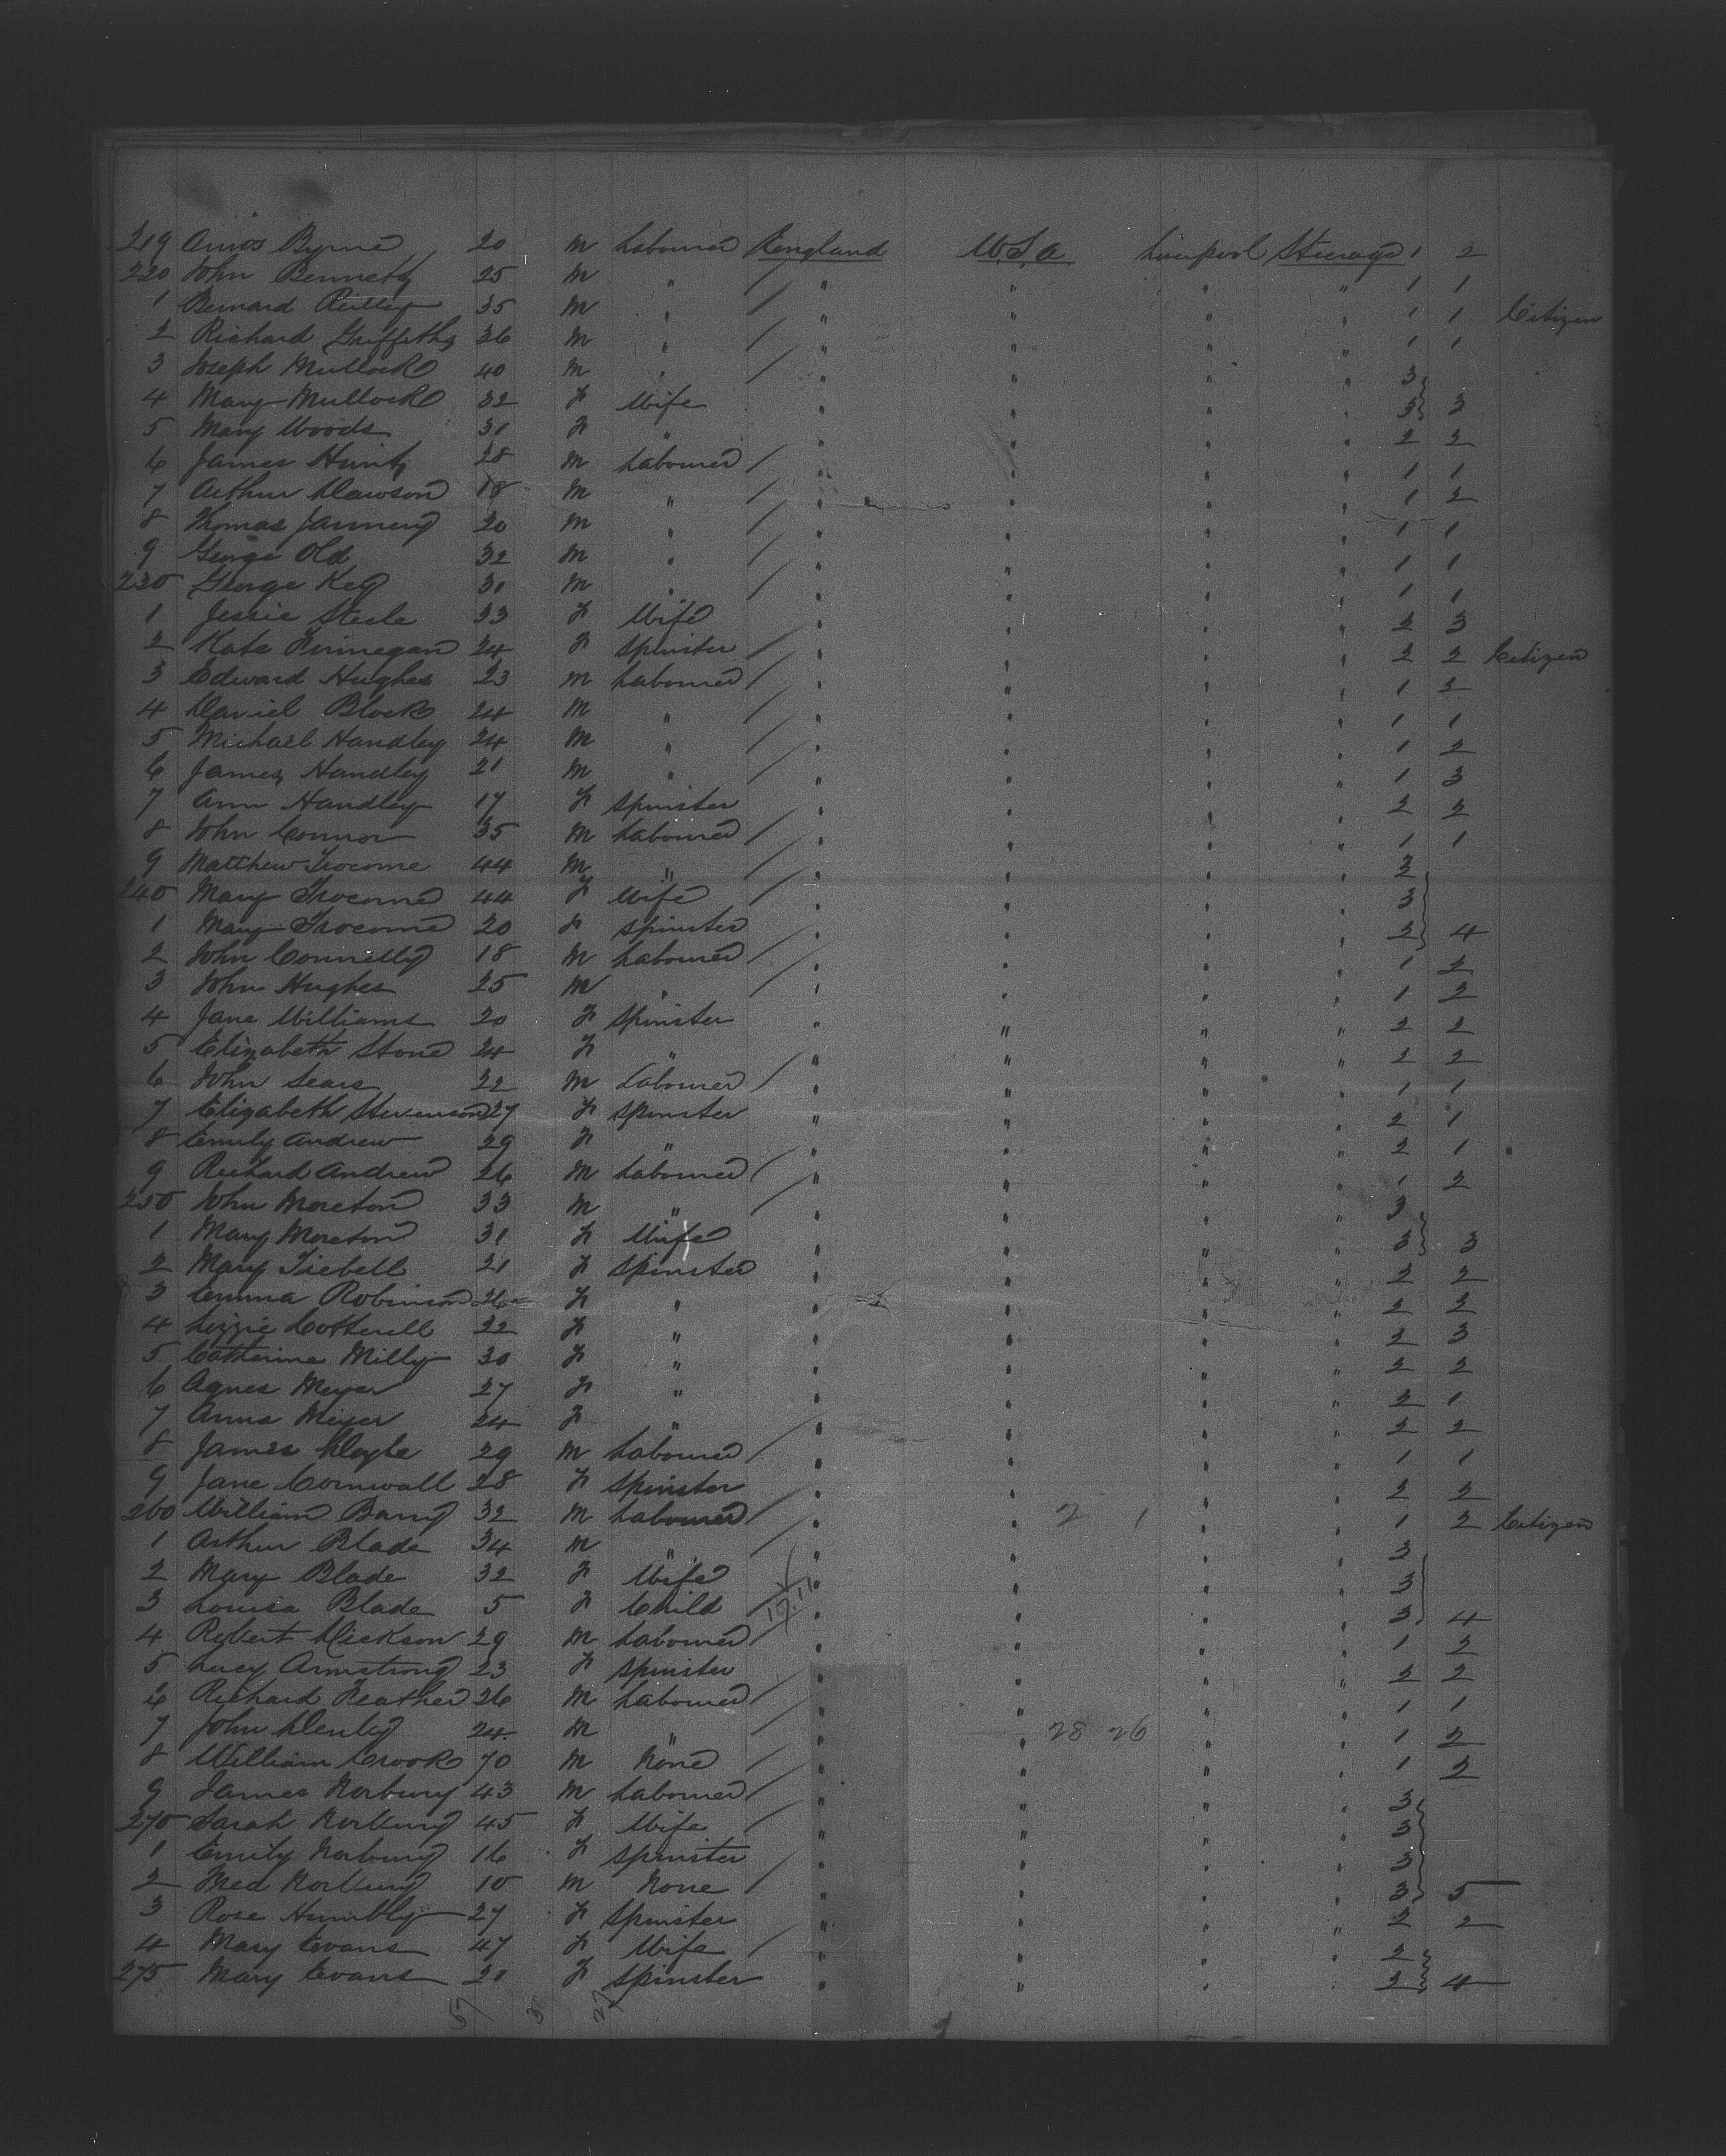 219 Amos Byrne 20 M Labourer England U.S.A Liverpool Steerage 1 2
220 John Bennett 25 M " / " " " " 1 1
1 Bernard Reilly 35 M " / " " " " 1 1 Citizen
2 Richard Griffiths 36 M " / " " " " 1 1
3 Joseph Mullock 40 M " / " " " " 3
4 Mary Mullock 32 F Wife " " " " 3 3
5 Mary Woods 31 F " " " " " 2 2
6 James Hunt 28 M Labourer / " " " " 1 1
7 Arthur Dawson 18 M " / " " " " 1 2
8 Thomas 20 M " / " " " " 1 1
9 George Old 32 M " / " " " " 1 1
230 George Key 30 M " / " " " " 1 1
1 Jessie Steele 33 F Wife " " " " 2 3
2 Kate Finnegan 24 F Spinster / " " " " 2 2 Citizen
3 Edward Hughes 23 M Labourer / " " " " 1 2
4 Daniel Block 24 M " / " " " " 1 1
5 Michael Handley 24 M " / " " " " 1 2
6 James Handley 21 M " / " " " " 1 3
7 Ann Handley 17 F Spinster " " " " 2 2
8 John Connor 35 M Labourer / " " " " 1 1
9 Matthew 44 M " / " " " " 3
240 Mary 44 F Wife / " " " " 3
1 Mary 20 F Spinster " " " " 3 4
2 John Connelly 18 M Labourer / " " " " 1 2
3 John Hughes 25 M " / " " " " 1 2
4 Jane Williams 20 F Spinster " " " " 2 2
5 Elizabeth Stone 24 F " " " " " 2 2
6 John Sears 22 M Labourer / " " " " 1 1
7 Elizabeth Stevenson 27 F Spinster " " " " 2 1
8 Emily Andrew 29 F " " " " " 2 1
9 Richard Andrew 26 M Labourer / " " " " 1 2
250 John Moreton 33 M " / " " " " 3
1 Mary Moreton 31 F Wife " " " " 3 3
2 Mary 21 F Spinster " " " " 2 2
3 Emma Robinson 26 F " " " " " 2 2
4 Lizzie Cotterell 22 F " " " " " 2 3
5 Catherine Milly 30 F " " " " " 2 2
6 Agnes Meyer 27 F " " " " " 2 1
7 Anna Meyer 24 F " " " " " 2 2
8 James Doyle 29 M Labourer / " " " " 1 1
9 Jane Cornwall 28 F Spinster " " " " 2 2
260 William Barry 32 M Labourer / " " 2 1 " " 1 2 Citizen
1 Arthur Blade 34 M " / " " " " 3
2 Mary Blade 32 F Wife " " " " 3
3 Louisa Blade 5 F Child " " " " 3 4
4 Robert Dickson 29 M Labourer / " " " " 1 2
5 Lucy Armstrong 23 F Spinster " " " " 2 2
6 Richard Feather 26 M Labourer / " " " " 1 1
7 John Denby 24 M " / " " 28 26 " " 1 2
8 William Crook 70 M None / " " " " 1 2
9 James Norbury 43 M Labourer / " " " " 3
270 Sarah Norbury 45 F Wife / " " " " 3
1 Emily Norbury 16 F Spinster " " " " 3
2 Norbury 10 M None / " " " " 3 5
3 Rose Humbly 27 F Spinster " " " " 2 2
4 Mary Evans 47 F Wife / " " " " 2
275 Mary Evans 20 F Spinster " " " " 2 4